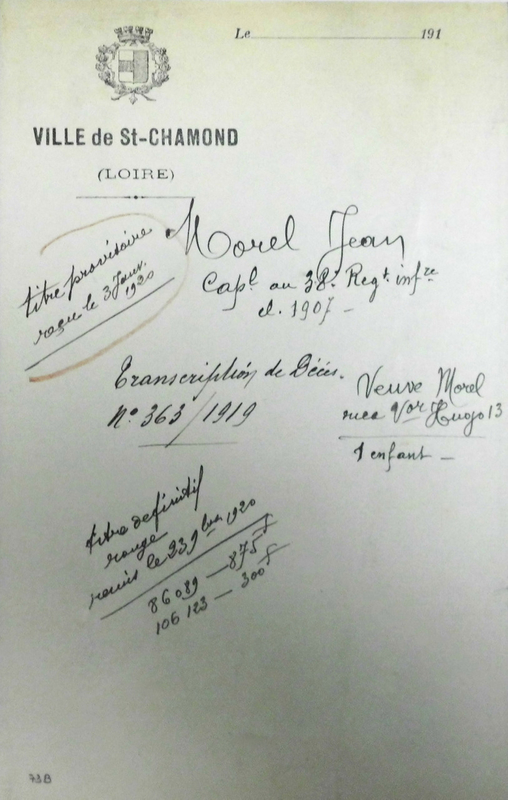 Le 191
VILLE de St-CHAMOND
(LOIRE)
Morel Jean
Capl au 38e Regt infre
cl. 1907 -
titre provisoire
reçu le 3 Janv.
1920
Transcription de Décès.
No 363/1919
Veuve Morel
rue Vor Hugo 13
1 enfant -
titre definitif
rouge
remis le 23 9bre 1920
86089 - 875 f
106 123 - 300 f
73B